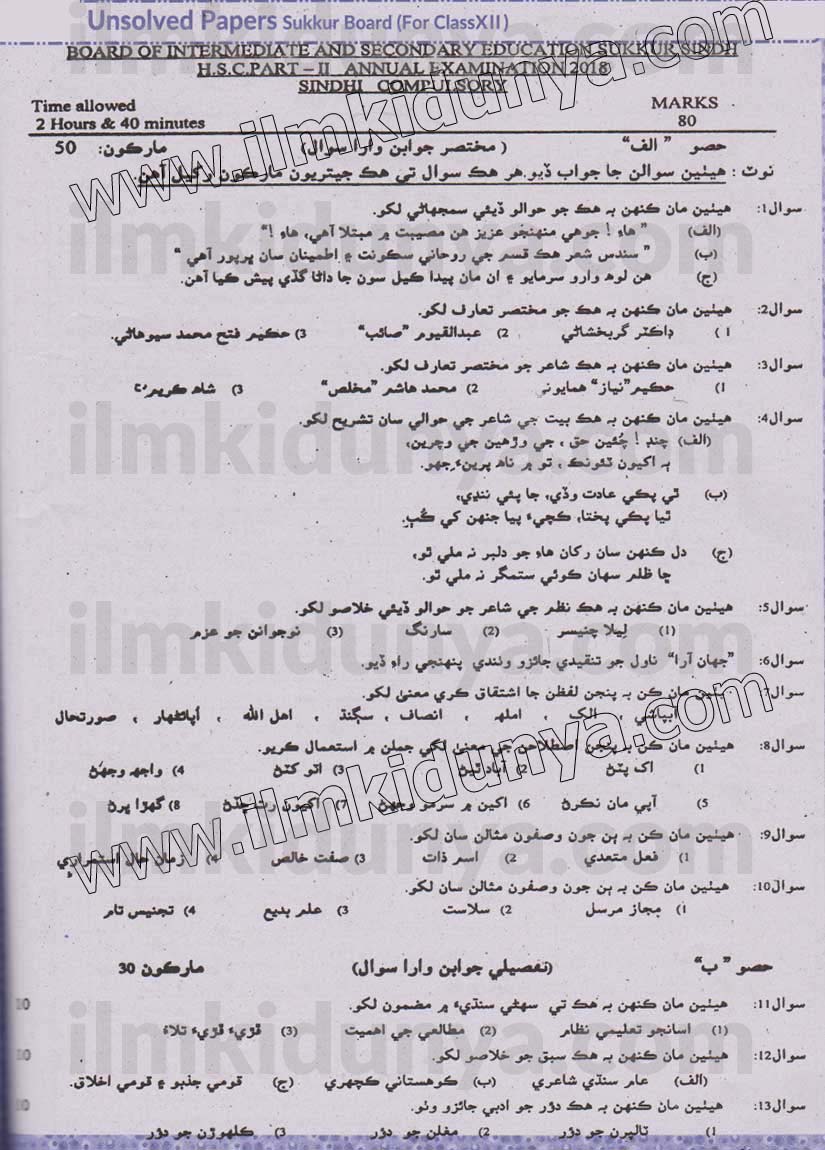 Unsolved Papers Sukkur Board (For ClassXII)
BOARD OF INTERMEDIATE AND SECONDARY EDUCATION SUKKUR SINDH
H.S.C.PART – II ANNUAL EXAMINATION 2018
SINDHI COMPULSORY
Time allowed MARKS
2 Hours & 40 minutes 80
حصو " الف" ( مختصر جوابن وارا سوال) مارڪون: 50
نوٽ : هيٺين سوالن جا جواب ڏيو. هر هڪ سوال تي هڪ جيتريون مارڪون رکيل آهن.
سوال1: هيٺين مان ڪنهن به هڪ جو حوالو ڏيئي سمجهاڻي لکو.
(الف) " هاءِ ! جوهي منهنجو عزيز هن مصيبت ۾ مبتلا آهي، هاءِ !"
(ب) " سندس شعر هڪ قسم جي روحاني سڪونت ۽ اطمينان سان ڀرپور آهي "
(ج) هن لوھ وارو سرمايو ۽ ان مان پيدا ڪيل سون جا داڻا گڏي پيش ڪيا آهن.
سوال2: هيٺين مان ڪنهن به هڪ جو مختصر تعارف لکو.
1 ) ڊاڪٽر گربخشاڻي 2) عبدالقيوم "صائب" 3) حڪيم فتح محمد سيوهاڻي.
سوال3: هيٺين مان ڪنهن به هڪ شاعر جو مختصر تعارف لکو.
1) حڪيم "نياز" همايوني 2) محمد هاشم "مخلص" 3) شاھ ڪريمؒ
سوال4: هيٺين مان ڪنهن به هڪ بيت جي شاعر جي حوالي سان تشريح لکو.
(الف) چنڊ ! چُئين حق ، جي وڙهين جي وچرين،
ٻه اکيون نئونڪ ، تو ۾ ناھ پرينءَ جهو.
(ب) ٿي پڪي عادت وڏي، جا پئي ننڍي،
ٿيا پڪي پختا، ڪچيءَ پيا جنهن کي ڪُٻ.
(ج) دل ڪنهن سان رکان هاءِ جو دلبر نه ملي ٿو،
ڇا ظلم سهان ڪوئي ستمگر نه ملي ٿو.
سوال5: هيٺين مان ڪنهن به هڪ نظم جي شاعر جو حوالو ڏيئي خلاصو لکو.
(1) ليلا چنيسر (2) سارنگ (3) نوجوانن جو عزم
سوال6: "جهان آرا" ناول جو تنقيدي جائزو وٺندي پنهنجي راءِ ڏيو.
سوال7: هيٺين مان ڪن به پنجن لفظن جا اشتقاق ڪري معنيٰ لکو.
آبپاشي ، الڪ ، املھ ، انصاف ، سڳنڌ ، اهل الله ، اُپائڻهار ، صورتحال
سوال8: هيٺين مان ڪن به پنجن اصطلاحن جي معنيٰ لکي جملن ۾ استعمال ڪريو.
1) اک پٽڻ 2) آباد ٿيڻ 3) اٽو ڪٽڻ 4) واجهه وجهڻ
5) آپي مان نڪرڻ 6) اکين ۾ سرمو وجهڻ 7) اکيون رت ڇڏڻ 8) گهڙا ڀرڻ
سوال9: هيٺين مان ڪن به ٻن جون وصفون مثالن سان لکو.
1) فعل متعدي 2) اسم ذات 3) صفت خالص 4) زمان حال استمراري
سوال10: هيٺين مان ڪن به ٻن جون وصفون مثالن سان لکو.
1) مجاز مرسل 2) سلاست 3) علم بديع 4) تجنيس تام
حصو " ب" (تفصيلي جوابن وارا سوال) مارڪون 30
سوال11: هيٺين مان ڪنهن به هڪ تي سهڻي سنڌيءَ ۾ مضمون لکو. 10
(1) اسانجو تعليمي نظام (2) مطالعي جي اهميت (3) ڦڙيءَ ڦڙيءَ تلاءُ
سوال12: هيٺين مان ڪنهن به هڪ سبق جو خلاصو لکو. 10
(الف) عام سنڌي شاعري (ب) ڪوهستاني ڪچهري (ج) قومي جذبو ۽ قومي اخلاق.
سوال13: هيٺين مان ڪنهن به هڪ دؤر جو ادبي جائزو وٺو. 10
1) ٽالپرن جو دؤر 2) مغلن جو دؤر 3) ڪلهوڙن جو دؤر
www.ilmkidunya.com
www.ilmkidunya.com
ilmkidunya.com
ilmkidunya.com
ilmkidunya.com
ilmkidunya.com
ilmkidunya.com